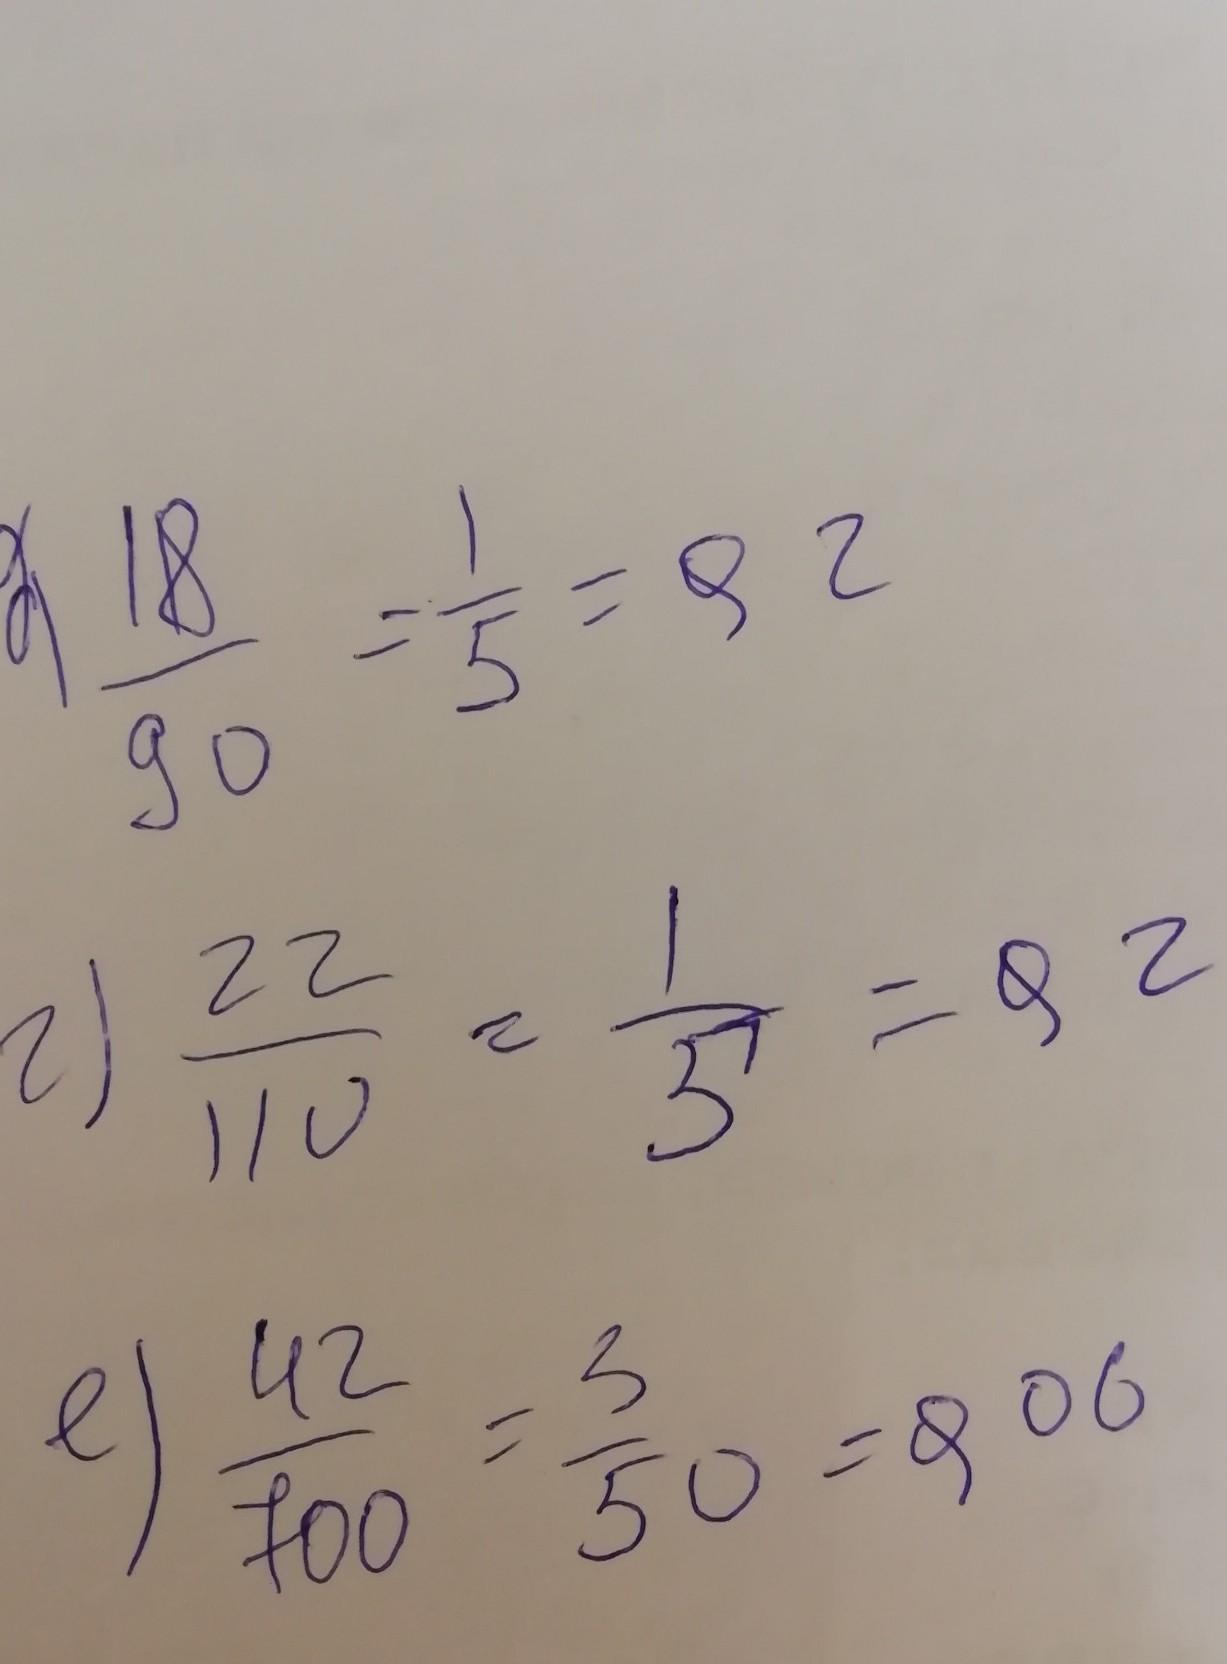 д) 18/90 = 1/5 = 0,2
г) 22/110 = 1/5 = 0,2
е) 42/700 = 3/50 = 0,06